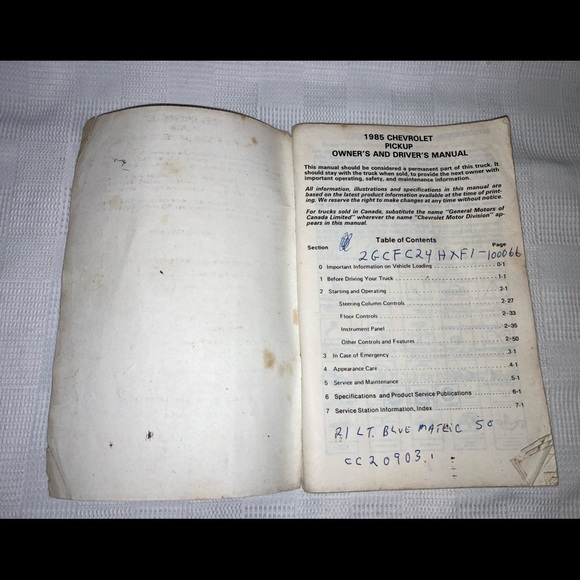 1985 CHEVROLET
PICKUP
OWNER'S AND DRIVER'S MANUAL
This manual should be considered a permanent part of this truck. It
should stay with the truck when sold, to provide the next owner with
important operating, safety, and maintenance information.
All information, illustrations and specifications in this manual are
based on the latest product information available at the time of print-
ing. We reserve the right to make changes at any time without notice.
For trucks sold in Canada, substitute the name "General Motors of
Canada Limited" wherever the name "Chevrolet Motor Division" ap-
pears in this manual.
Table of Contents
Section Page
2GCFC24HXF1-100066
0 Important Information on Vehicle Loading 0-1
1 Before Driving Your Truck 1-1
2 Starting and Operating 2-1
Steering Column Controls 2-27
Floor Controls 2-33
Instrument Panel 2-35
Other Controls and Features 2-50
3 In Case of Emergency 3-1
4 Appearance Care 4-1
5 Service and Maintenance 5-1
6 Specifications and Product Service Publications 6-1
7 Service Station Information, Index 7-1
LT. BLUE
CC20903